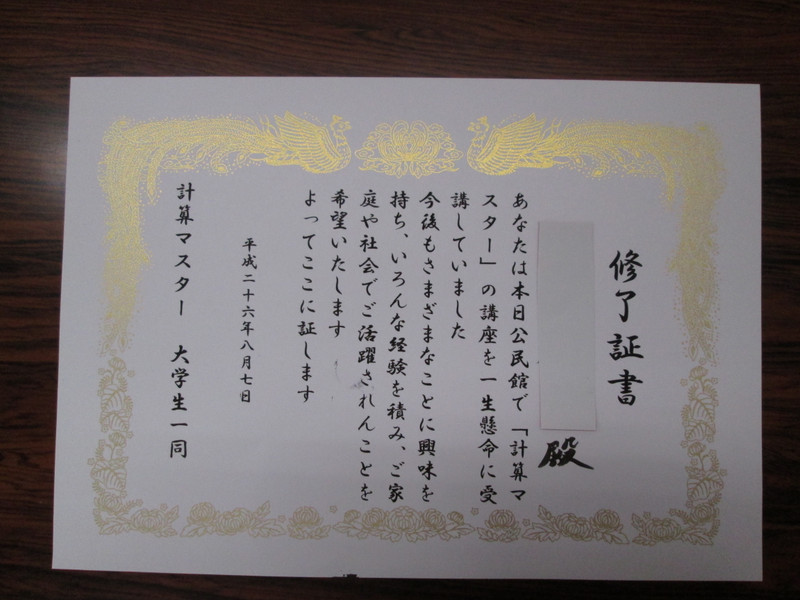 修了証書
殿
あなたは本日公民館で「計算マ
スター」の講座を一生懸命に受
講していました
今後もさまざまなことに興味を
持ち、いろんな経験を積み、ご家
庭や社会でご活躍されんことを
希望いたします
よってここに証します
平成二十六年八月七日
計算マスター　大学生一同